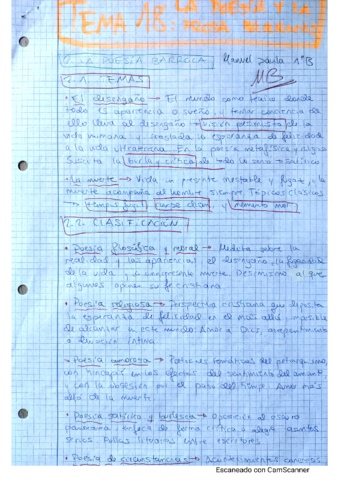 TEMA 1B: LA POESÍA Y LA PROSA BARROCA
1. LA POESÍA BARROCA Manuel Dávila 1ºB
1.1. TEMAS MB
• El desengaño → El mundo como teatro donde
todo es apariencia o sueño, y tomar conciencia de
ello lleva al desengaño → visión pesimista de la
vida humana y traslada la esperanza de felicidad
a la vida ultraterrena. En la poesía metafísica y algunos
suscita la burla y crítica de todo lo serio → satírico
• La muerte → Vida un presente inestable y fugaz, la
muerte acompaña al hombre siempre. Tópicos clásicos
→ tempus fugit, carpe diem, y memento mori
1.2. CLASIFICACIÓN
• Poesía filosófica y moral → Medita sobre la
realidad y las apariencias, el desengaño, la fugacidad
de la vida y la omnipresente muerte. Pesimismo al que
algunos oponen su fe cristiana.
• Poesía religiosa → Perspectiva cristiana que deposita
la esperanza de felicidad en el más allá, imposible
de alcanzar en este mundo. Amor a Dios, arrepentimiento
o devoción íntima.
→ Poesía amorosa → Patrones temáticos del petrarquismo,
con hincapié en los efectos del sentimiento del amante
y con la obsesión por el paso del tiempo. Amor más
allá de la muerte.
• Poesía satírica y burlesca → Oposición al oscuro
panorama, enfoca de forma crítica y alegre asuntos
serios. Pullas literarias entre escritores.
• Poesía de circunstancias → Acontecimientos concretos
Escaneado con CamScanner